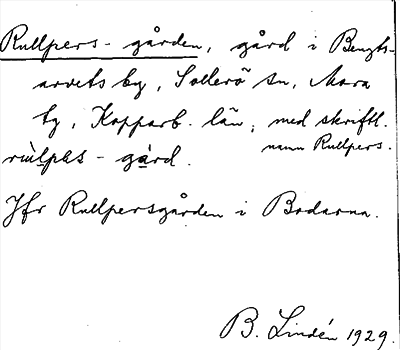 Rullpers-gården, gård i Bengts-
arvets by, Sollerö sn, Mora
tg, Kopparb. län, med skriftl.
namn Rullpers.
rùlpas-gård.
Jfr Rullpersgården i Bodarna.
B. Lindén 1929.